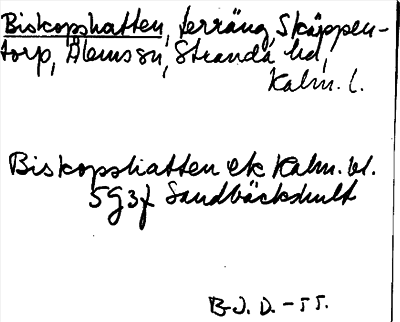 Biskopshatten, terräng, Skäppen-
torp, Ålems sn, Stranda hd,
Kalm. l.
Biskopshatten ek Kalm. bl.
5G3f Sandbäckshult
B-J. D. - 55.